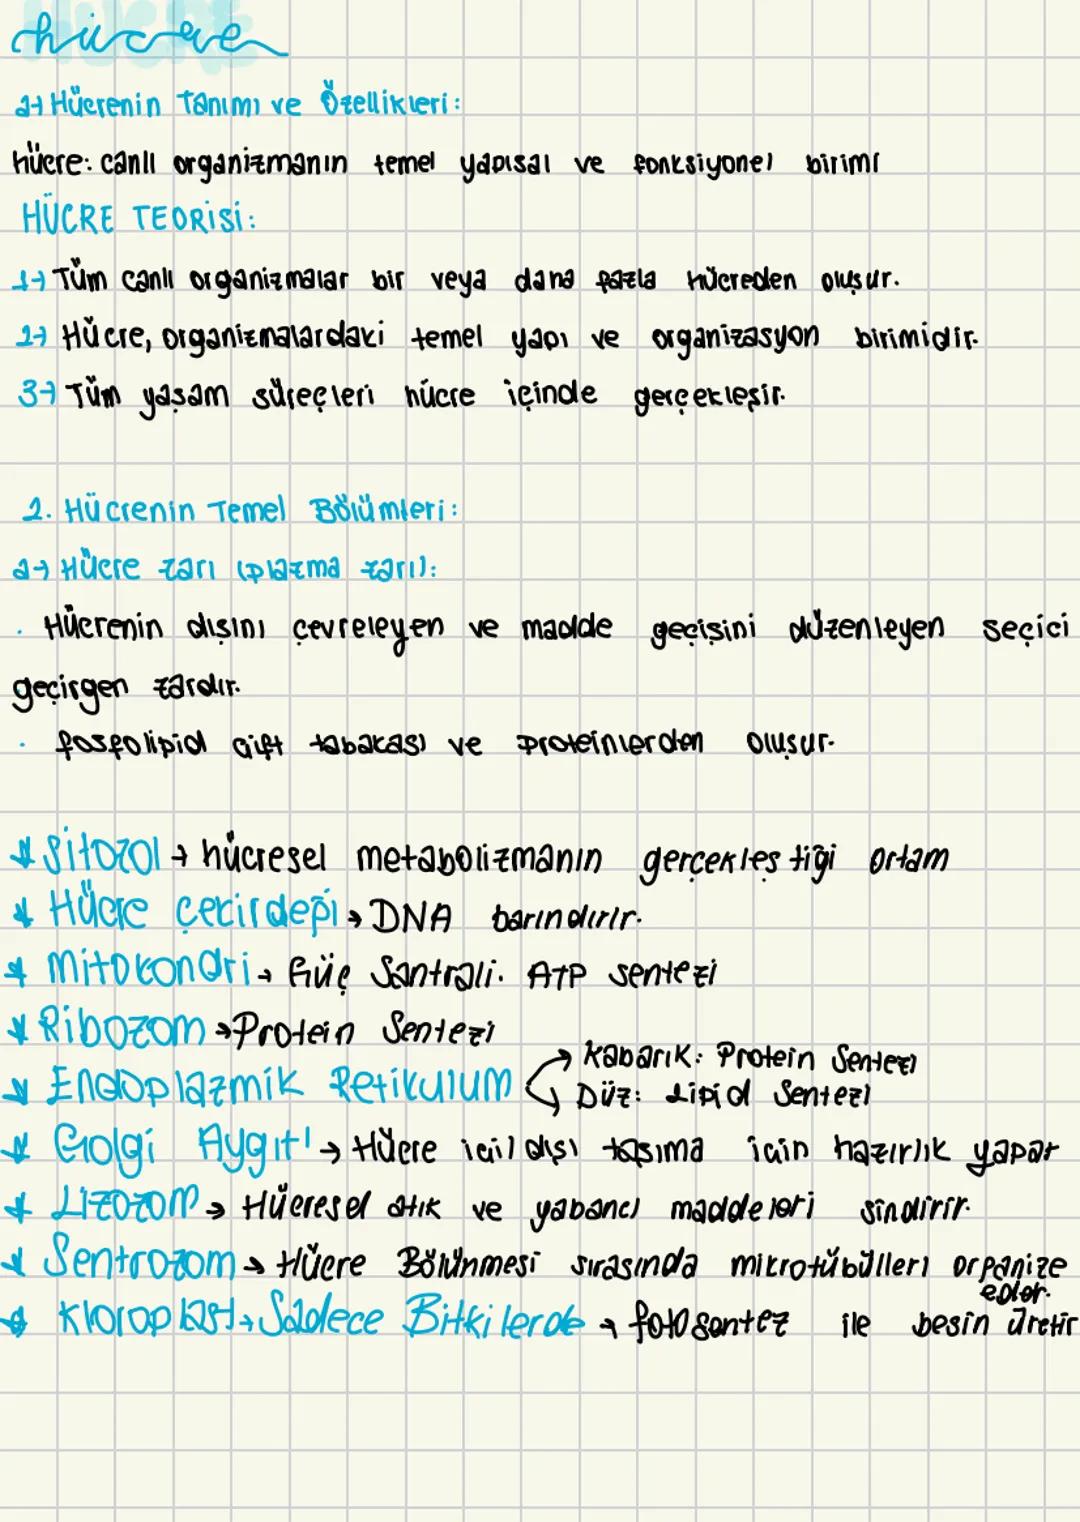 hücre
a→ Hücrenin Tanımı ve Özellikleri:
hücre: canlı organizmanın temel yapısal ve fonksiyonel birimi
HÜCRE TEORİSİ:
1→ Tüm canlı organizmalar bir veya daha fazla hücreden oluşur.
2→ Hücre, organizmalardaki temel yapı ve organizasyon birimidir.
3→ Tüm yaşam süreçleri hücre içinde gerçekleşir.
2. Hücrenin Temel Bölümleri:
a→ Hücre zarı (plazma zarı):
· Hücrenin dışını çevreleyen ve madde geçişini düzenleyen seçici
geçirgen zardır.
· fosfolipid çift tabakası ve proteinlerden oluşur.
* Sitozol → hücresel metabolizmanın gerçekleştiği ortam
* Hücre çekirdeği → DNA barındırır.
* Mitokondri → Güç Santrali. ATP sentezi
* Ribozom → Protein Sentezi
* Endoplazmik Retikulum → Kabarık: Protein Sentezi
→ Düz: Lipid Sentezi
* Golgi Aygıtı → Hücre içi/dışı taşıma için hazırlık yapar
* Lizozom → Hücresel atık ve yabancı maddeleri sindirir.
* Sentrozom → Hücre Bölünmesi sırasında mikrotübülleri organize
eder.
* Kloroplast → Sadece Bitkilerde → fotosentez ile besin üretir